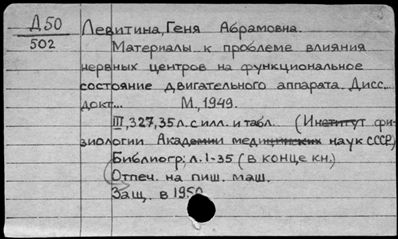 Д50
502
Левитина, Геня Абрамовна.
Материалы к проблеме влияния
нервных центров на функциональное
состояние двигательного аппарата. Дисс...
докт... М., 1949.
III, 327, 35 л. с илл. и табл. (Институт фи-
зиологии Академии медицинских наук СССР)
Библиогр; л. 1-35 (в конце кн.)
Отпеч. на пиш. маш.
Защ. в 1950